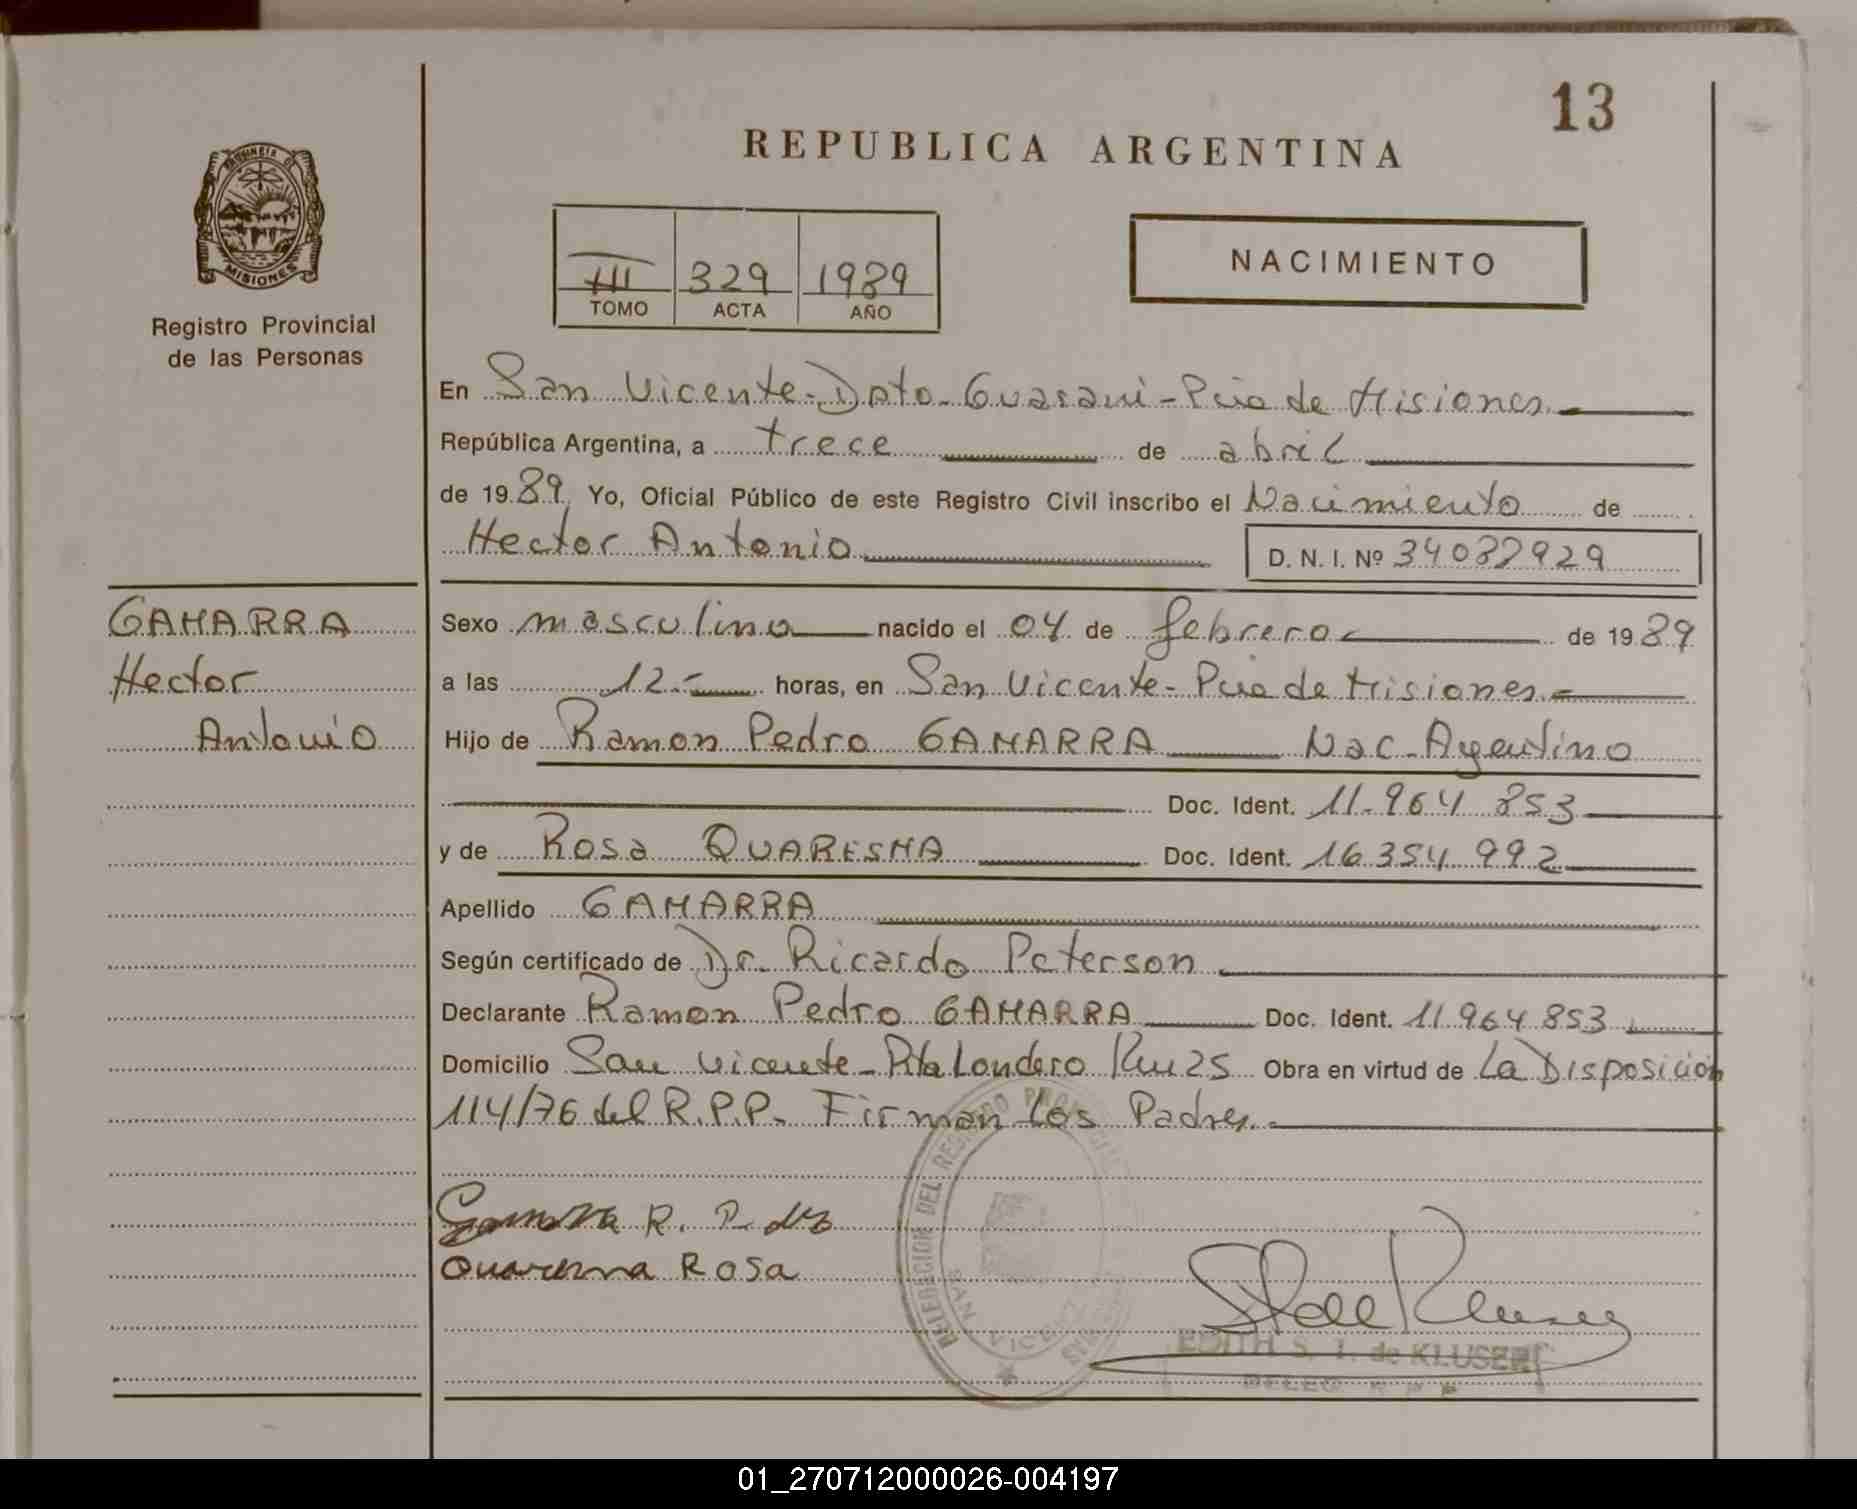 13
REPUBLICA ARGENTINA
PROVINCIA DE
MISIONES
Registro Provincial
de las Personas
III 329 1989
TOMO ACTA AÑO
NACIMIENTO
En San Vicente-Dpto-Guarani-Pcia de Misiones
República Argentina, a trece de abril
de 1989 Yo, Oficial Público de este Registro Civil inscribo el Nacimiento de
Hector Antonio D. N. I. Nº 34082929
GAMARRA
Hector
Antonio
Sexo masculino nacido el 04 de febrero de 1989
a las 12.- horas, en San Vicente-Pcia de Misiones
Hijo de Ramon Pedro GAMARRA Nac-Argentino
Doc. Ident. 11.964 853
y de Rosa QUARESMA Doc. Ident. 16 354 992
Apellido GAMARRA
Según certificado de Dr. Ricardo Peterson
Declarante Ramon Pedro GAMARRA Doc. Ident. 11 964 853
Domicilio San Vicente- Londero Km 25 Obra en virtud de La Disposición
114/76 del R.P.P. Firman Los Padres
Gamarra R. P.
Quaresma Rosa
DELEGACION DEL REGISTRO
SAN VICENTE
EDITH S. T. de KLUSENER
DELEG. R P P
01_270712000026-004197